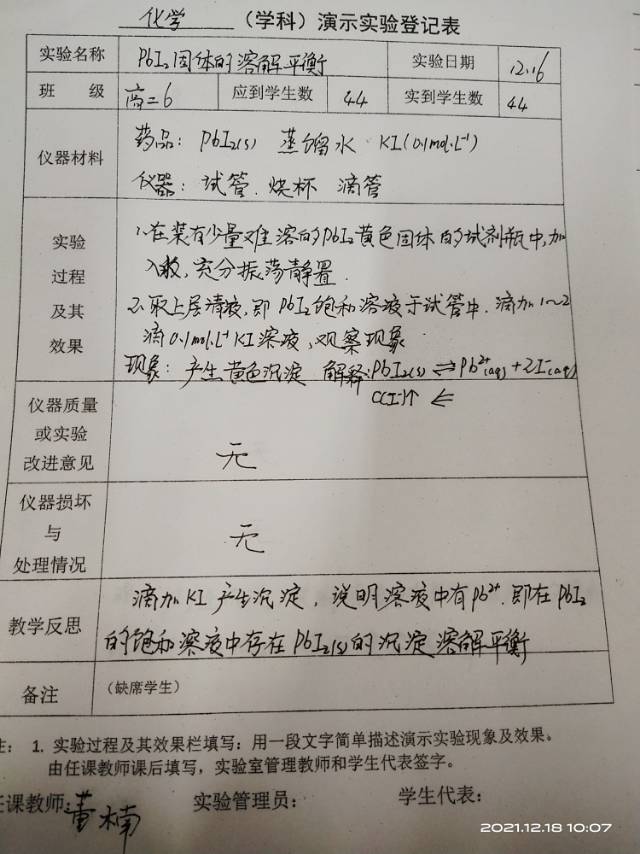 化学 （学科）演示实验登记表
实验名称 PbI₂固体的溶解平衡 实验日期 12.16
班 级 高二6 应到学生数 44 实到学生数 44
仪器材料
药品：PbI₂(s) 蒸馏水 KI(0.1mol·L⁻¹)
仪器：试管．烧杯 滴管
实验
过程
及其
效果
1.在装有少量难溶的PbI₂黄色固体的试剂瓶中,加
入 ，充分振荡静置．
2.取上层清液，即PbI₂饱和溶液于试管中．滴加1～2
滴0.1mol·L⁻¹KI溶液，观察现象
现象：产生黄色沉淀 解释：PbI₂(s) ⇌ Pb²⁺(aq) + 2I⁻(aq)
C(I⁻)↑ ←
仪器质量
或实验
改进意见
无
仪器损坏
与
处理情况
无
教学反思
滴加KI产生沉淀，说明溶液中有Pb²⁺．即在PbI₂
的饱和溶液中存在PbI₂(s)的沉淀溶解平衡
备注 （缺席学生）
注： 1. 实验过程及其效果栏填写：用一段文字简单描述演示实验现象及效果。
由任课教师课后填写，实验室管理教师和学生代表签字。
任课教师：董楠 实验管理员： 学生代表：
2021.12.18 10:07